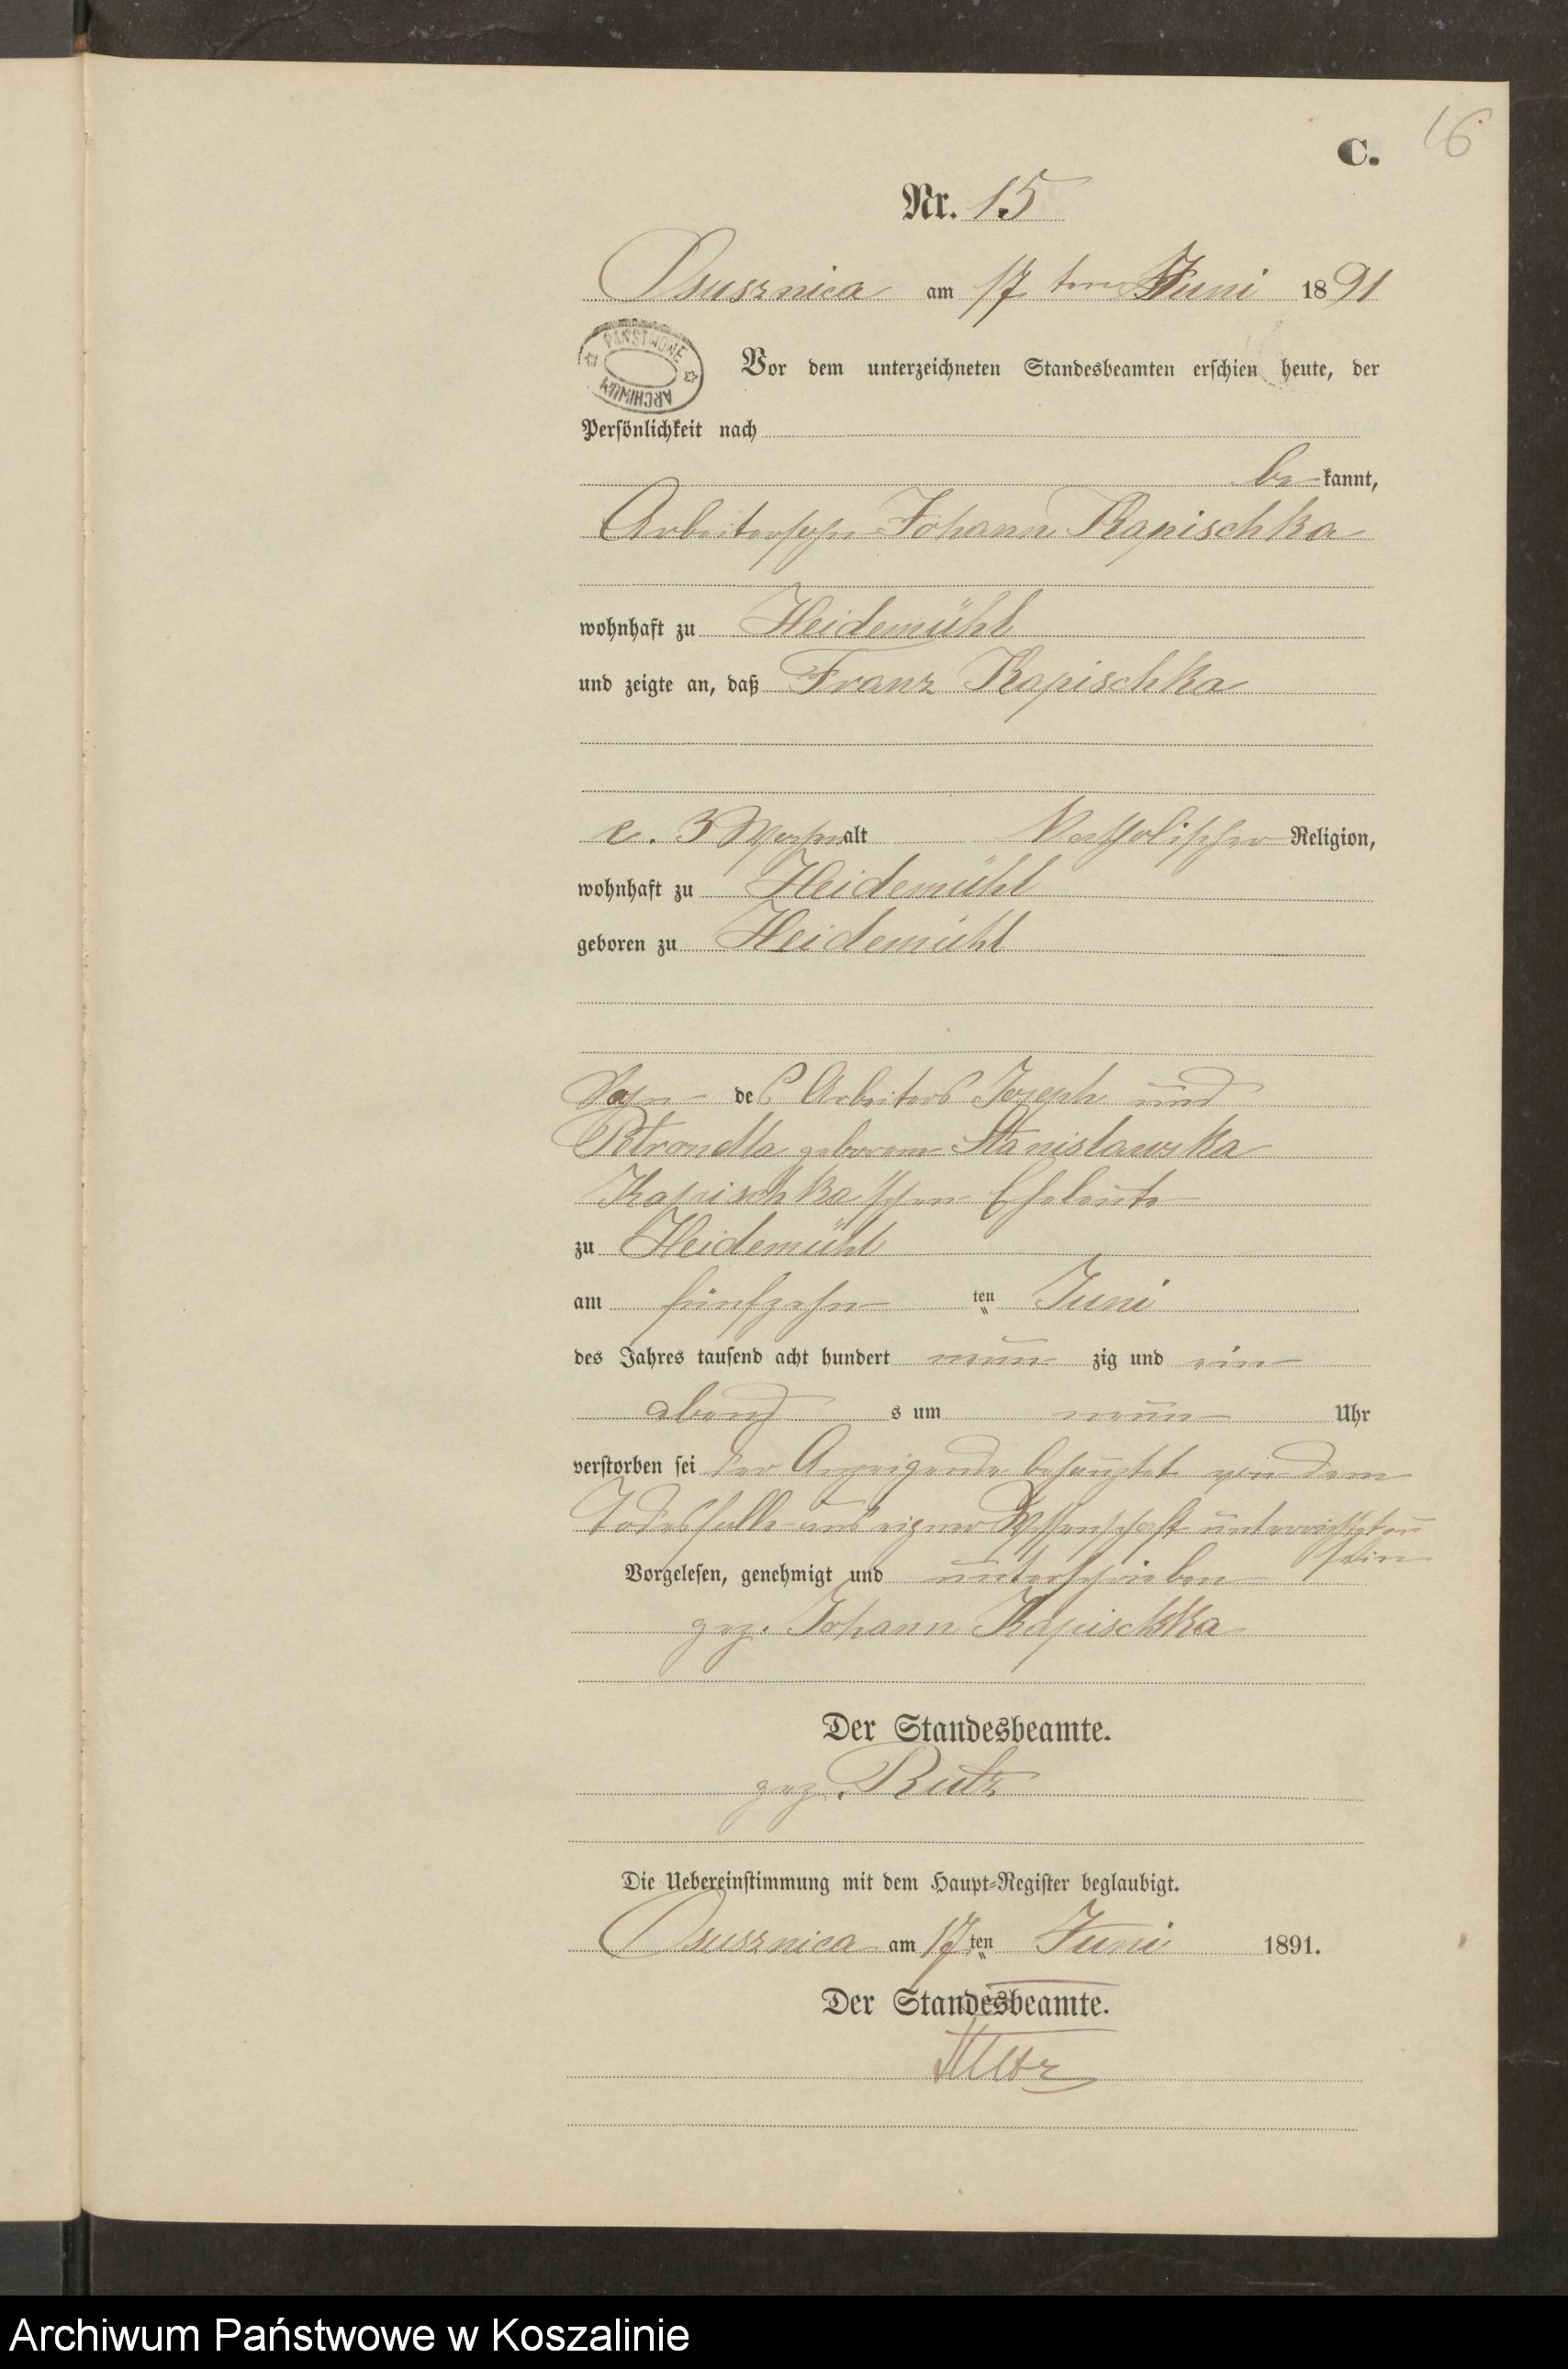 16
C.
Nr. 15
Osusznica am 17 ten Juni 1891
PAŃSTWOWE ARCHIWUM
Vor dem unterzeichneten Standesbeamten erschien heute, der
Persönlichkeit nach
be kannt,
Arbeitersohn Johann Kapischka
wohnhaft zu Heidemühl
und zeigte an, daß Franz Kapischka
3 Wochen alt Katholischer Religion,
wohnhaft zu Heidemühl
geboren zu Heidemühl
Sohn des Arbeiters Joseph und
Petronella geborene Stanislawska
Kapischka'schen Eheleute
zu Heidemühl
am fünfzehn ten Juni
des Jahres tausend acht hundert neun zig und ein
abend s um neun Uhr
verstorben sei der Anzeigende behauptet von dem
Todesfalle aus eigner Wissenschaft unterrichtet zu
sein
Vorgelesen, genehmigt und unterschrieben
gez. Johann Kapischka
Der Standesbeamte.
gez. Rutz
Die Uebereinstimmung mit dem Haupt-Register beglaubigt.
Osusznica am 17 ten Juni 1891.
Der Standesbeamte.
Rutz
Archiwum Państwowe w Koszalinie